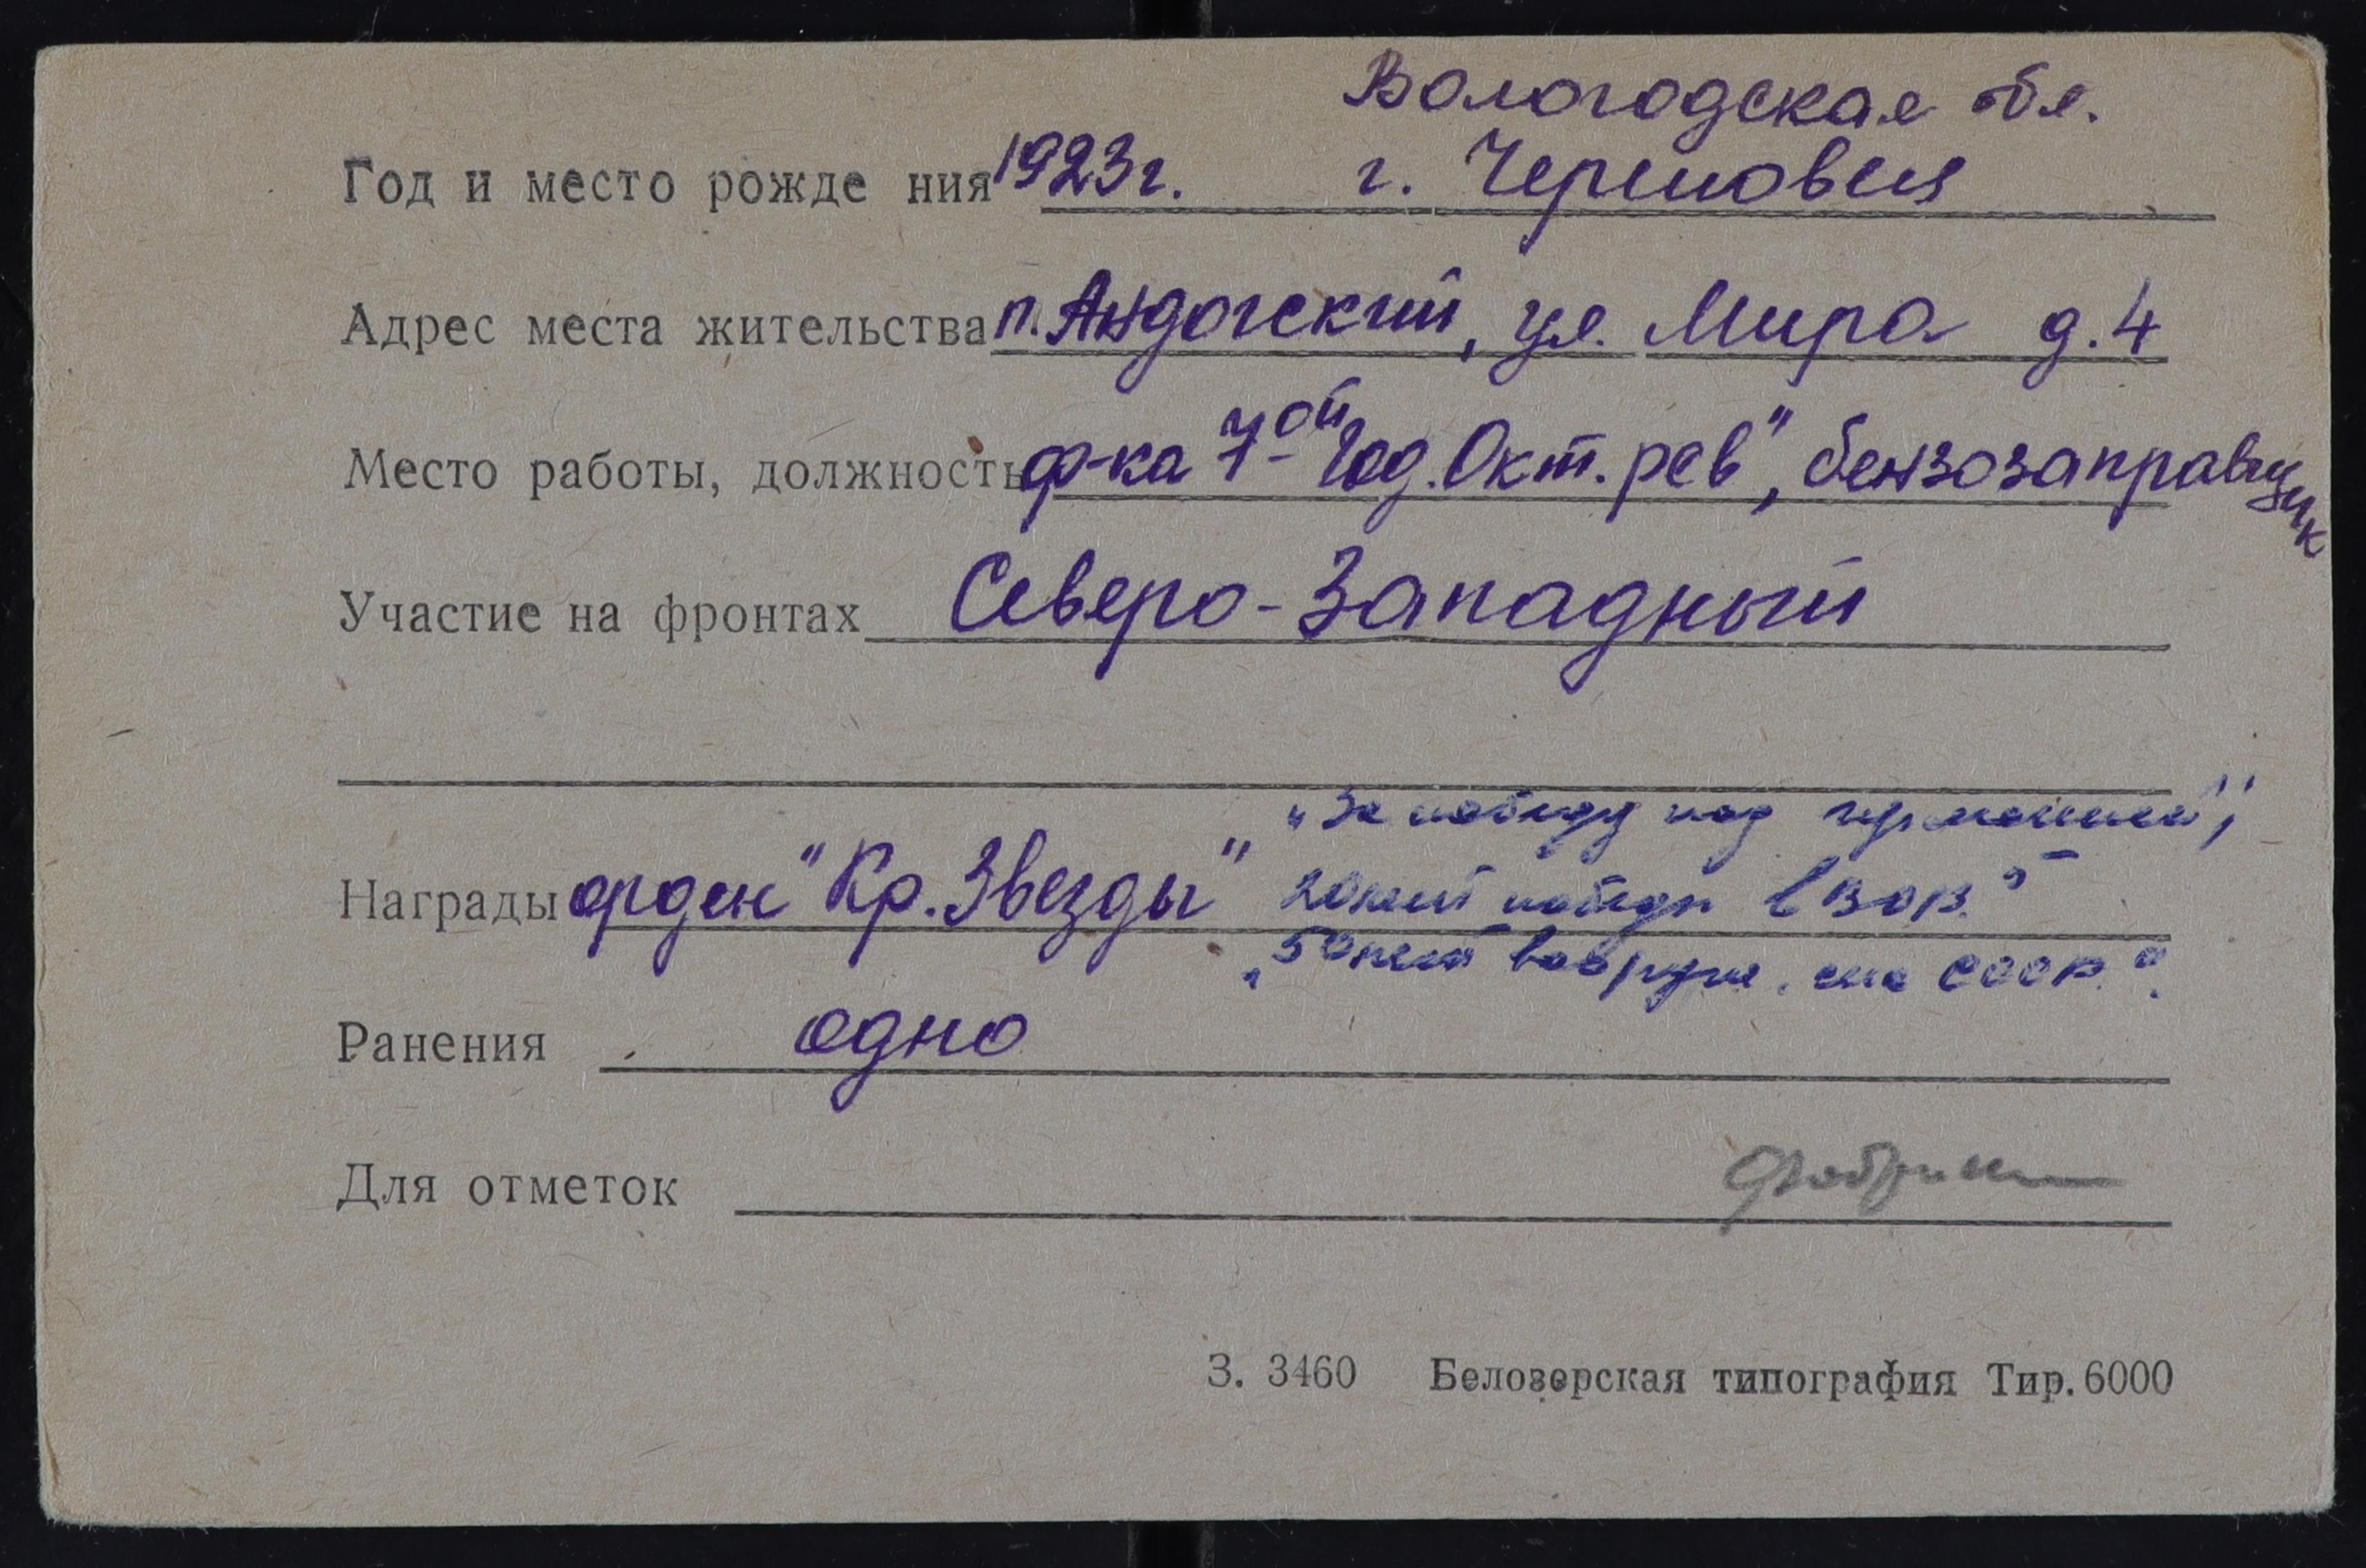 Вологодская обл.
Год и место рожде ния 1923г. г. Череповец
Адрес места жительства п. Андогский, ул. Мира д. 4
Место работы, должность ф-ка 7-ой Год. Окт. рев", бензозаправщик
Участие на фронтах Северо-Западный
"За победу над германией";
Награды орден "Кр. Звезды" 20 лет победы в ВОВ."
"50 лет вооруж. сил СССР."
Ранения одно
Для отметок
З. 3460 Белозерская типография Тир. 6000